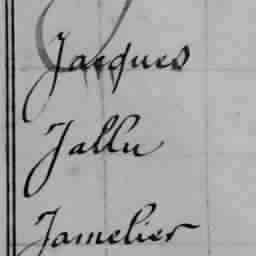 Jacques
Jallu
Jamelier